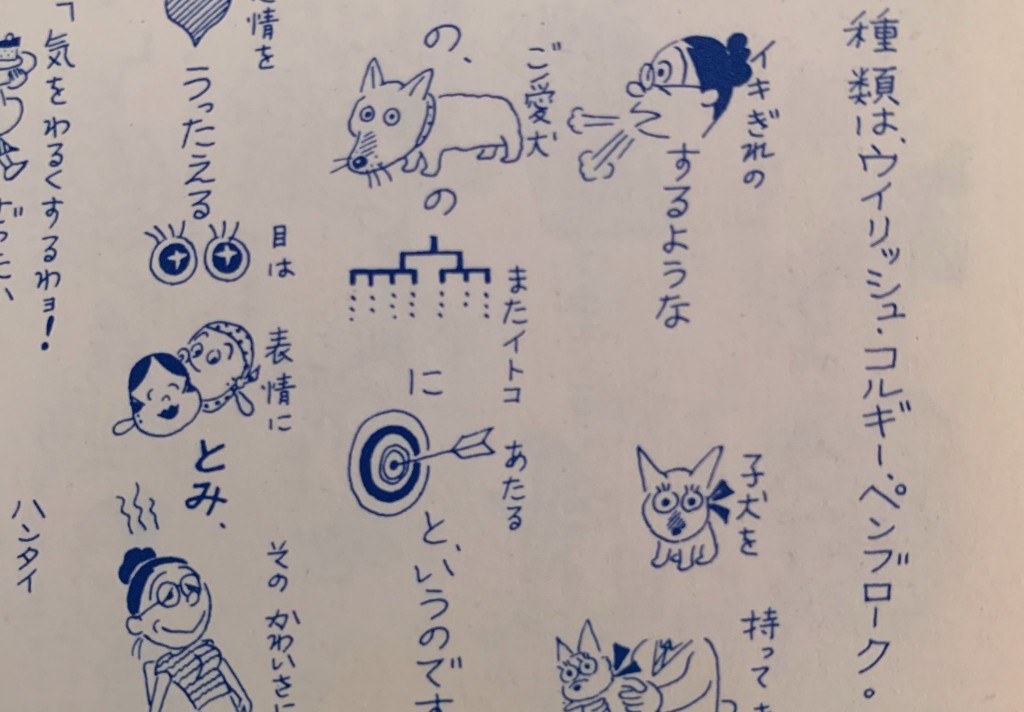 種類は、ウイリッシュ・コルギー、ペンブローク。
イキぎれの
するような
子犬を
持って
ご愛犬
の、
の
またイトコ
に
あたる
と、いうのです
情を
うったえる
目は
表情に
とみ、
その かわいさに
「気をわるくするわョ!
ハンタイ